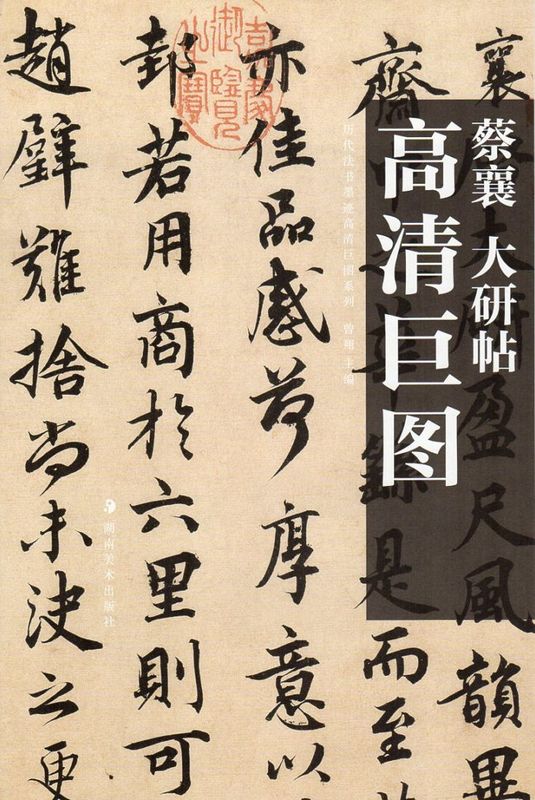 蔡襄 大研帖
高清巨图
历代法书墨迹高清巨图系列 曾翔 主编
湖南美术出版社
襄啓大研盈尺風韻異
齋中之華繇是而至
亦佳品感荷厚意以
邦若用商於六里則可
趙璧難捨尚未決之更
嘉慶御覽之寶